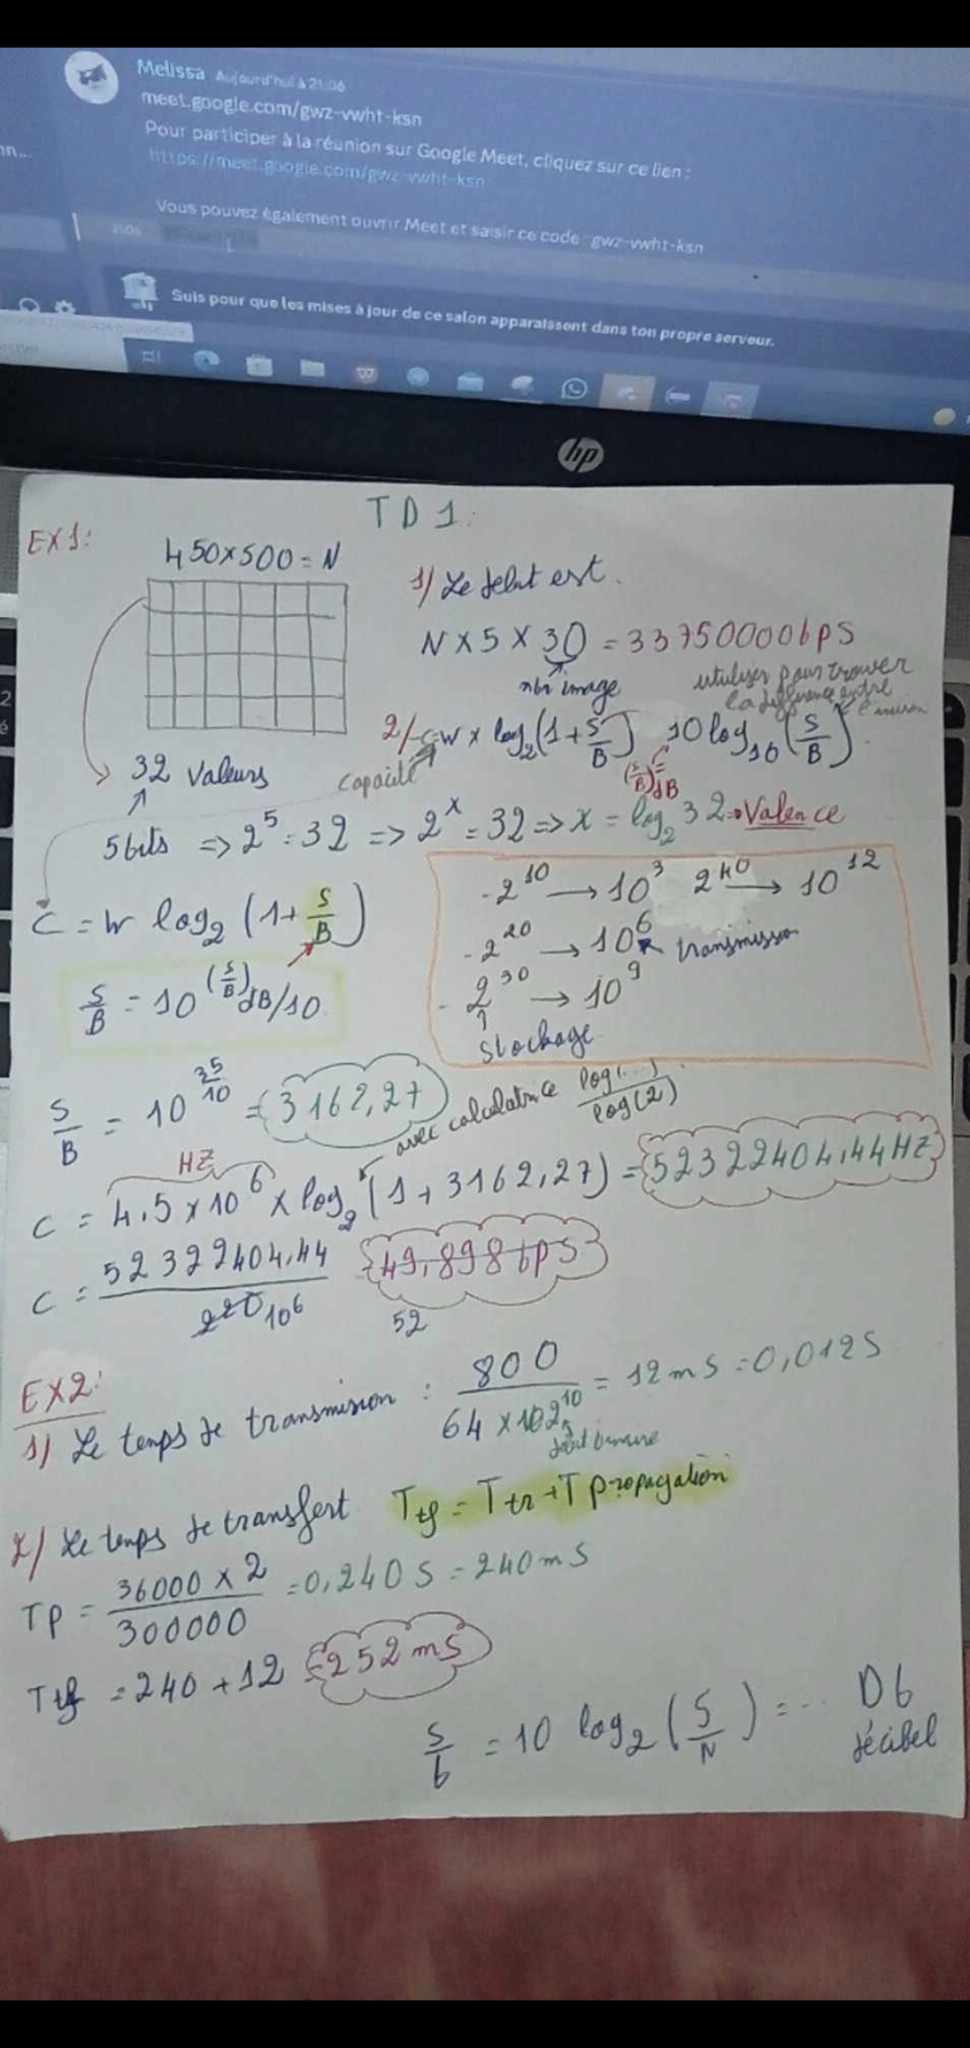 Melissa Aujourd'hui à 21:06
meet.google.com/gwz-vwht-ksn
Pour participer à la réunion sur Google Meet, cliquez sur ce lien :
https://meet.google.com/gwz-vwht-ksn
Vous pouvez également ouvrir Meet et saisir ce code : gwz-vwht-ksn
Suis pour que les mises à jour de ce salon apparaissent dans ton propre serveur.
hp
TD1:
EX1:
450×500=N
1/ Le debit est.
N × 5 × 30 = 33750000bps
nbr image
utuliser pour trouver
la différence entre
2/ C=W × log₂(1+S/B) 10 log₁₀(S/B).
capacité
(S/B)dB
32 Valeurs
5bits => 2⁵=32 => 2ˣ=32 => x = log₂32 => Valence
C = W log₂ (1+ S/B)
S/B = 10^(S/B)dB/10
- 2¹⁰ → 10³ 2⁴⁰ → 10¹²
- 2²⁰ → 10⁶ transmission
- 2³⁰ → 10⁹
Stockage
S/B = 10^35/10 = 3162,27
avec calculatrice log(...)/log(2)
HZ
C = 4.5×10⁶ × log₂(1+3162,27) = 52322404,44HZ
C = 52322404,44 / 2²⁰ 10⁶ 49,898bps
52
EX2:
1/ Le temps de transmision : 800 / 64 × 2¹⁰ = 12ms = 0,012S
debit binaire
2/ Le temps de transfert Ttf = Ttr + T propagation
TP = 36000 × 2 / 300000 = 0,240S = 240mS
Ttf = 240 + 12 = 252mS
S/b = 10 log₂ (S/N) = ... Db
décibel